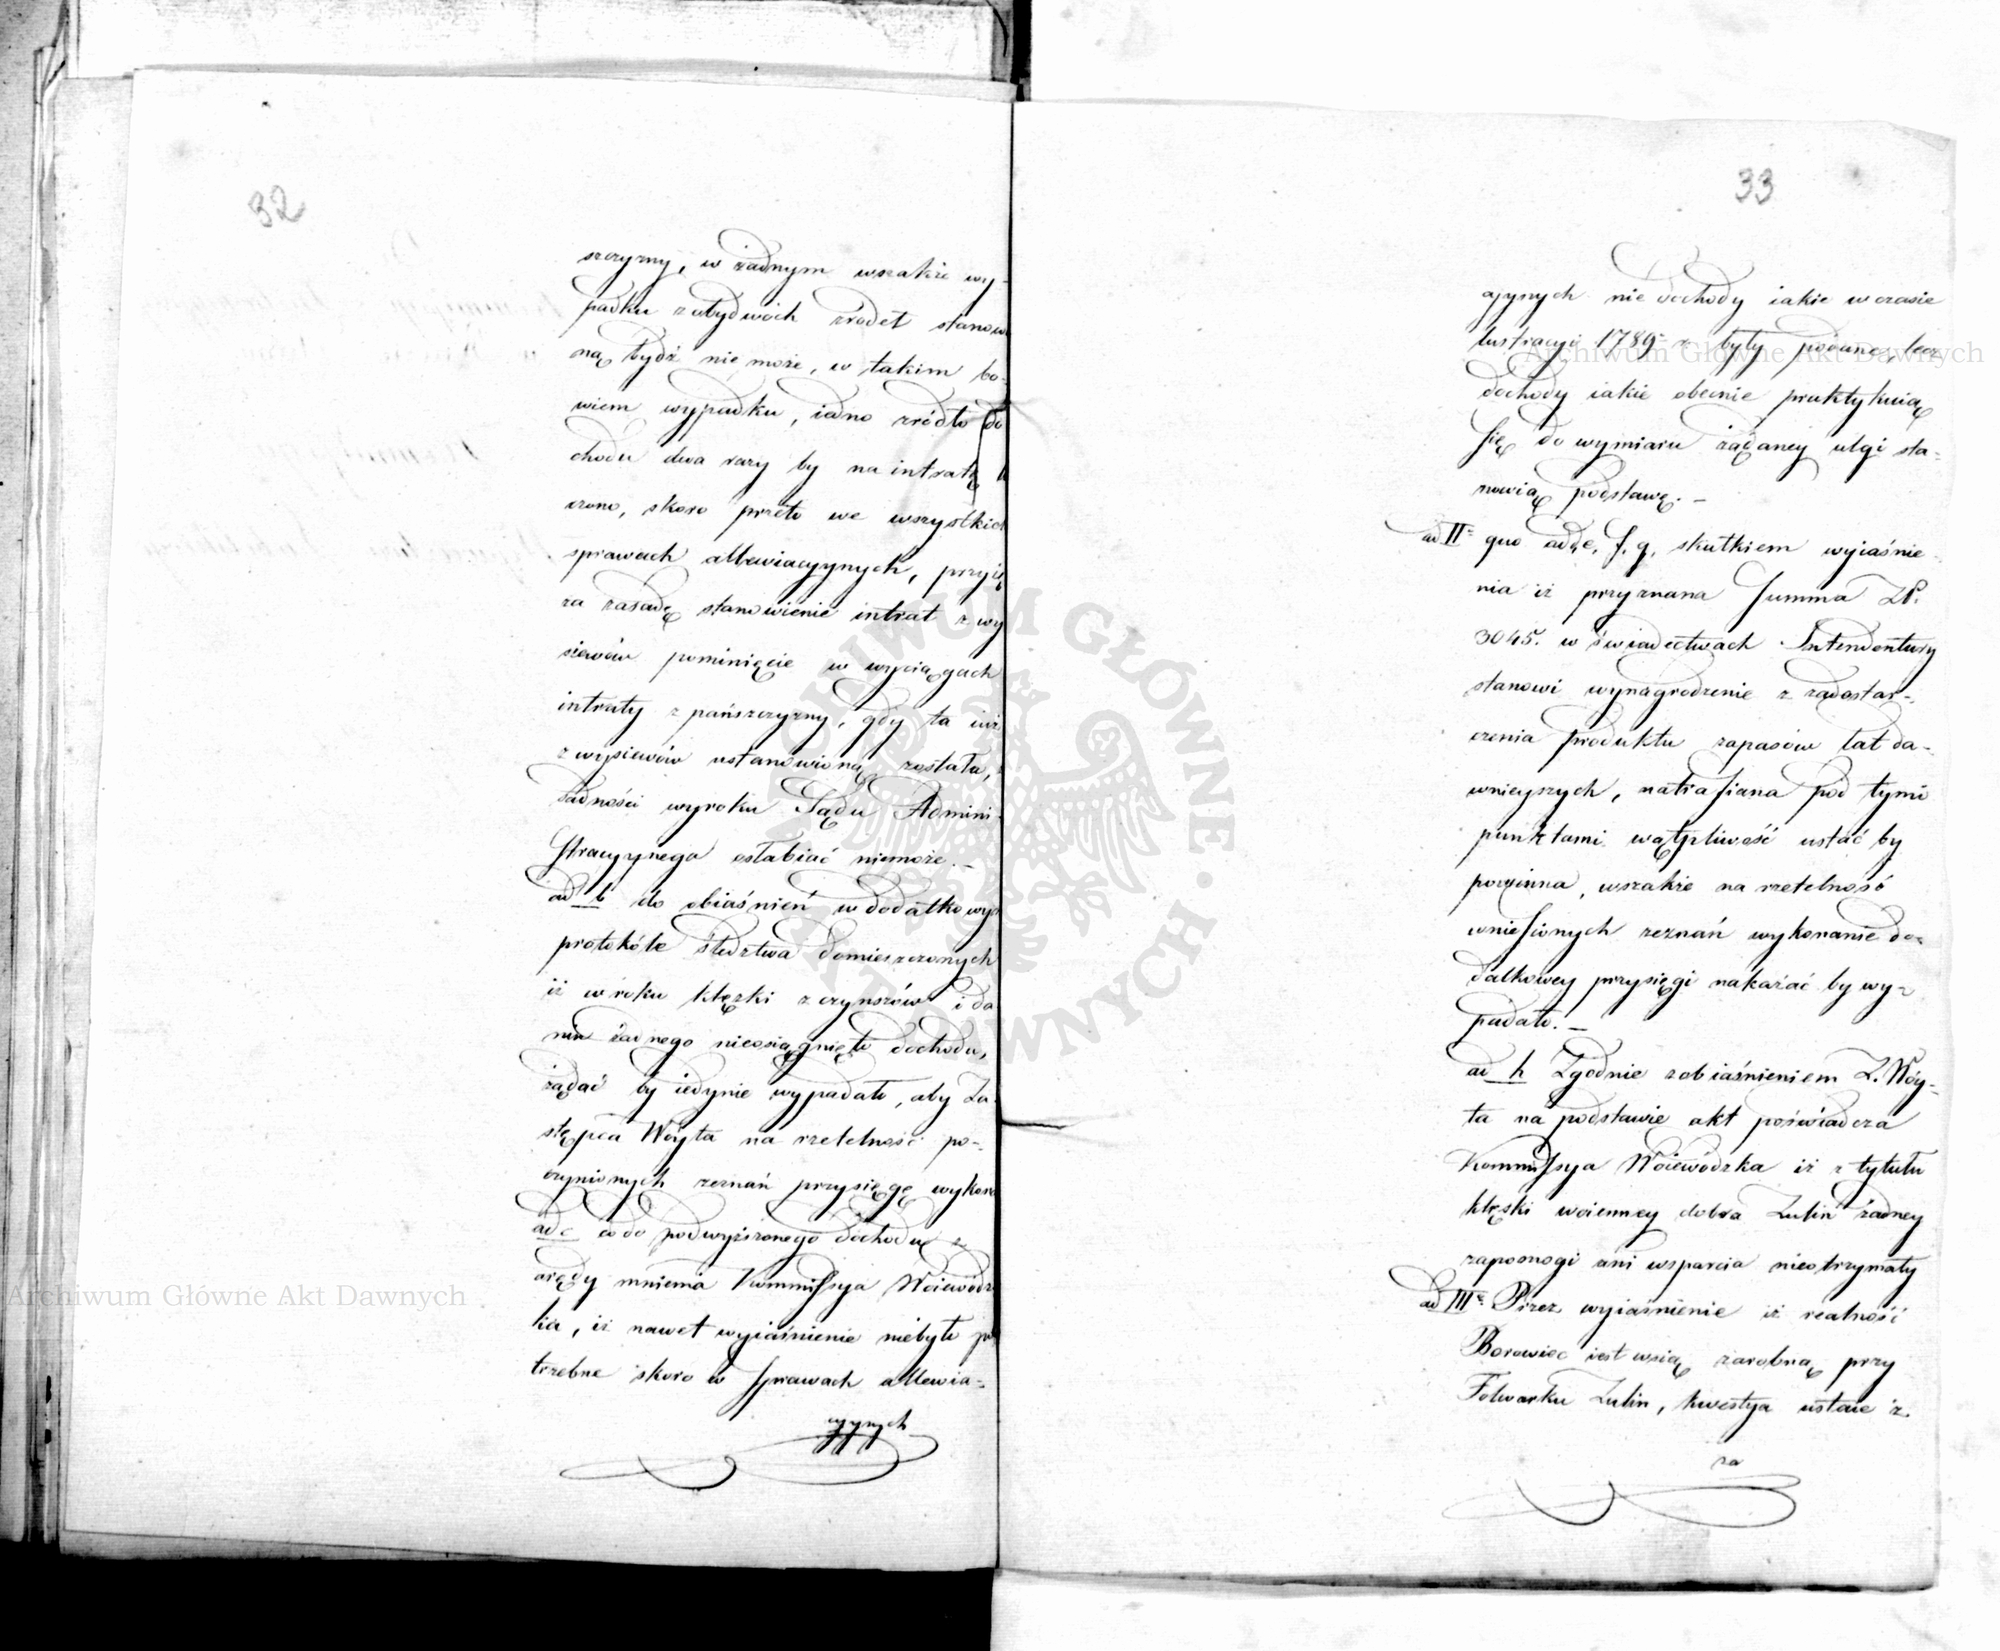 32
szczyzny, w żadnym wszakże wy-
padku z obydwóch źrodeł stanow
ną bydź nie może, w takim bo-
wiem wypadku, iedno zródło do
chodu dwa razy by na intratę
czono, skoro przeto we wszystkich
sprawach allewiacyynych, przyię
za zasadę stanowienie intrat z wy
siewów pominięcie w wyciągach
intraty z pańszczyzny, gdy ta iuż
z wysiewów ustanowioną została,
sadności wyroku Sądu Admini-
stracyynego osłabiać niemoże. –
ad b do obiaśnień w dodatkowych
protokóle śledztwa domieszczonych
iż w roku klęski z czynszów i da
nin żadnego nieosiągnięto dochodu,
żądać by iedynie wypadało, aby Za-
stępca Wóyta na rzetelność po-
czynionych zeznań przysięgę wykona
ad c co do podwyższonego dochodu z
arędy mniema Kommissya Woiewódz
ka, iż nawet wyiaśnienie niebyło po
trzebne skoro w sprawach allewia-
cyynych
33
cyynych nie dochody iakie w czasie
lustracyi 1789 r. były podane, lecz
dochody iakie obecnie praktykuią
się do wymiaru żądaney ulgi sta-
nowią podstawę. –
ad II quo ad d, e, f, g, skutkiem wyiaśnie-
nia iż przyznana Summa Zł.
3045. w świadectwach Intendentury
stanowi wynagrodzenie z zadostar-
czenia produktu zapasów lat da-
wnieyszych, natrafiana pod tymi
punktami wątpliwość ustać by
powinna, wszakże na rzetelność
wniesionych zeznań wykonanie do-
datkowey przysięgi nakazać by wy-
padało. –
ad h Zgodnie z obiaśnieniem Z. Wóy-
ta na podstawie akt poświadcza
Kommissya Woiewódzka iż z tytułu
klęski woienney dobra Zulin żadney
zapomogi ani wsparcia nieotrzymały
ad III Przez wyiaśnienie iż realność
Borowiec iest wsią zarobną przy
Folwarku Zulin, kwestya ustaie iż
za
Archiwum Główne Akt Dawnych
Archiwum Główne Akt Dawnych
ARCHIWUM GŁÓWNE AKT DAWNYCH